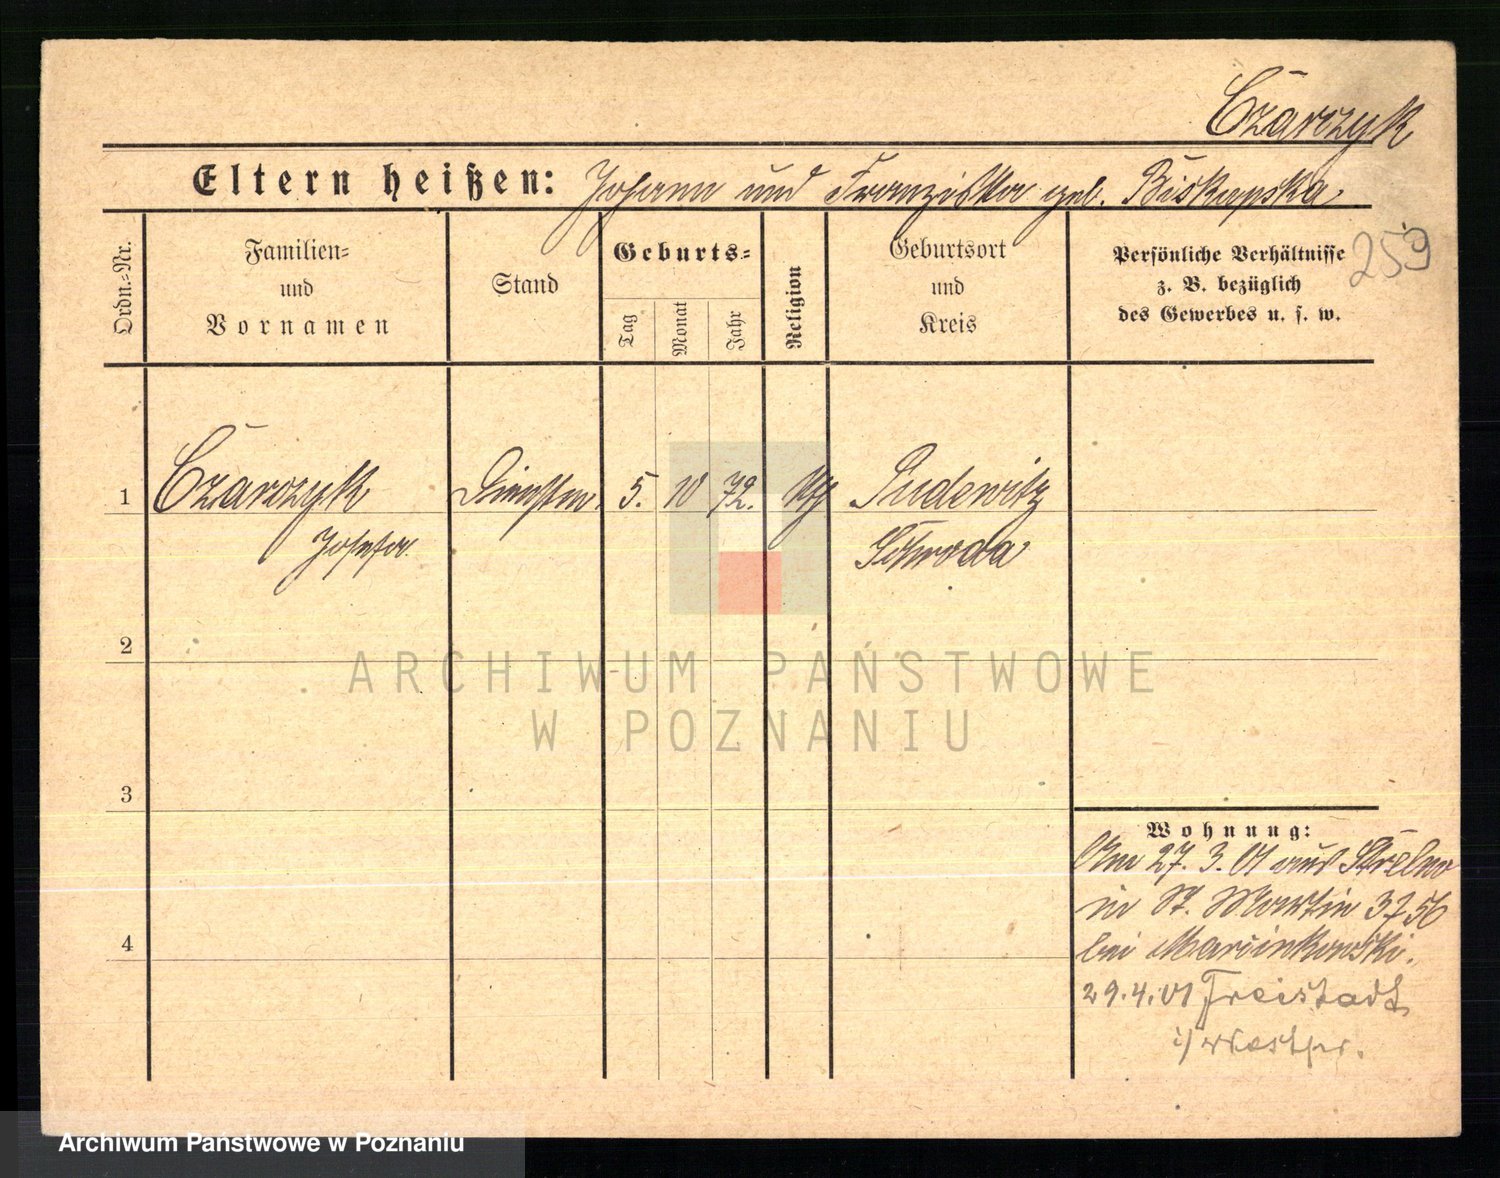 Czarczyk
Eltern heißen: Johann und Franziska geb. Biskupska
259
Ordn.-Nr.
Familien-
und
Vornamen
Stand
Geburts-
Tag
Monat
Jahr
Religion
Geburtsort
und
Kreis
Persönliche Verhältnisse
z. B. bezüglich
des Gewerbes u. s. w.
1 Czarczyk 5. 10 72. kth Pudewitz
Josefa Schroda
2
ARCHIWUM PAŃSTWOWE
W POZNANIU
3
Wohnung:
Am 27. 3. 01 aus Strelno
in St. Martin
4
bei Marcinkowski.
29.4.01 Freistadt
i/ Westpr.
Archiwum Państwowe w Poznaniu